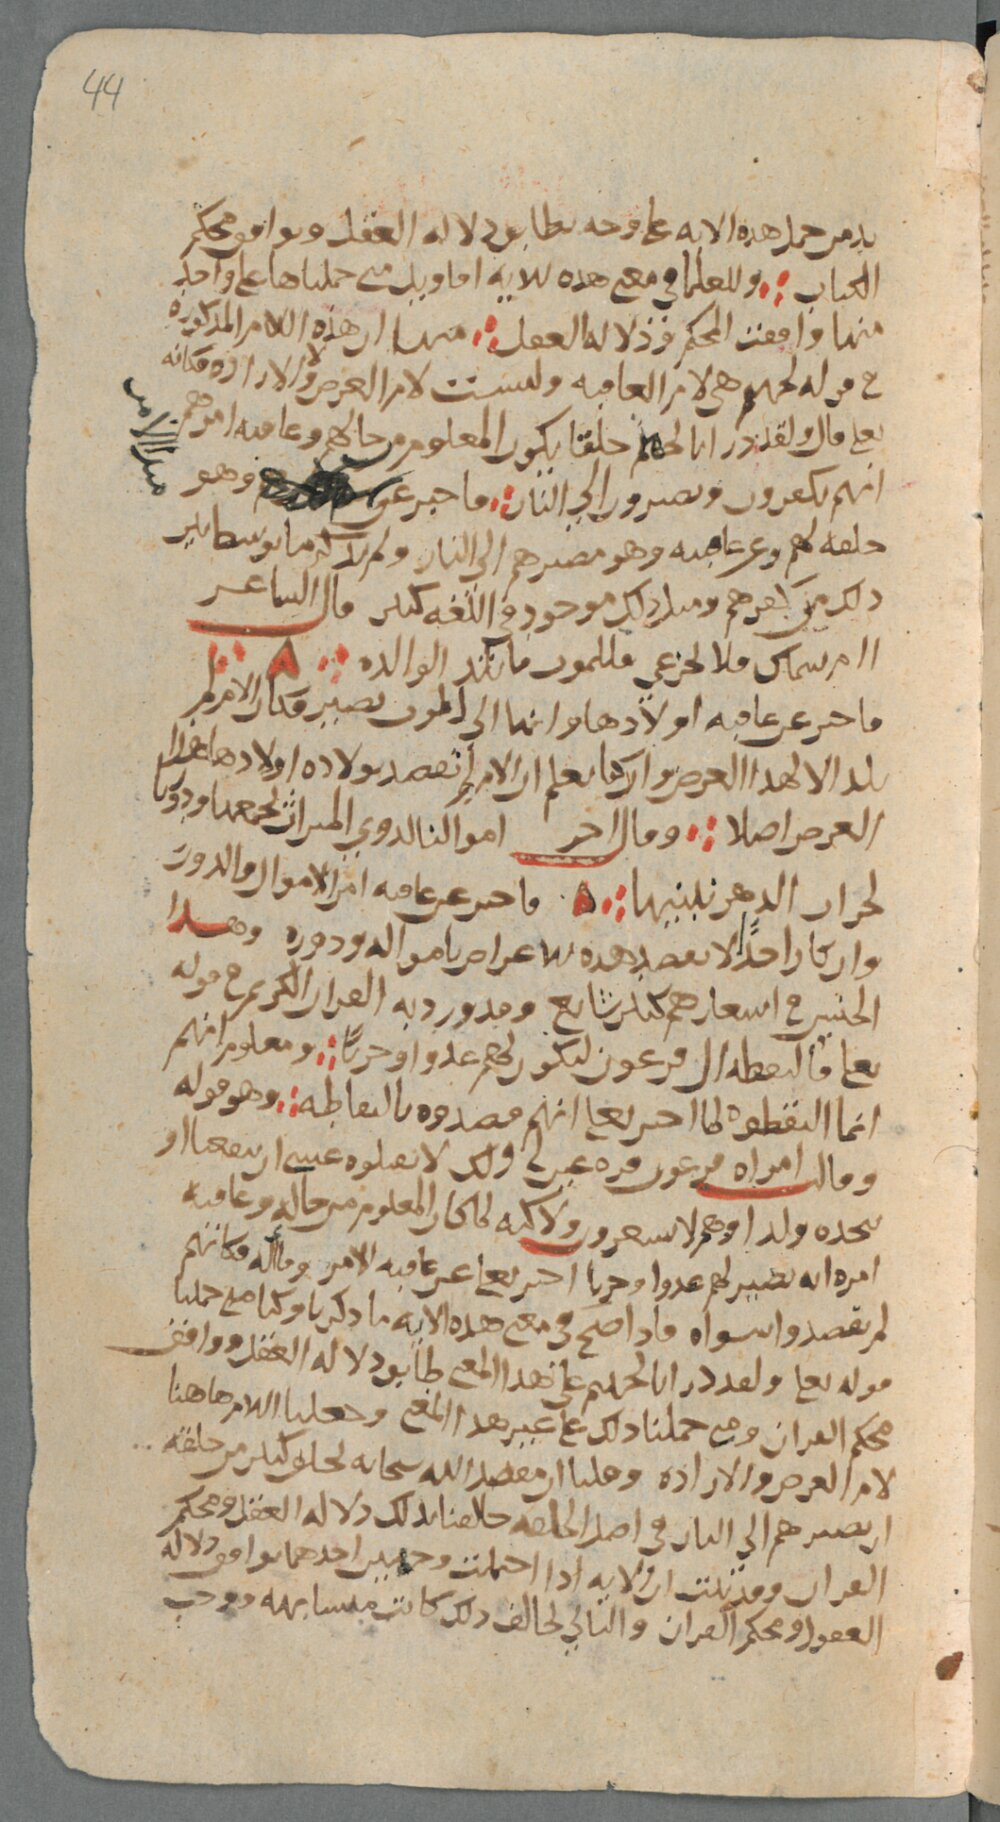 44
بد من حمل هذه الايه على وجه يطابق دلاله العقل ويوافق محكم
الكتاب ؞ وللعلما في معنى هذه الايه اقاويل متى حملناها على واحد
منها وافقت المحكم ودلاله العقل ؞ منها ان هذه اللام المذكوره
في قوله لجهنم هي لام العاقبه وليست لام الغرض ولا الاراده فكانه
تعلى قال ولقد ذرانا لجهنم خلقا يكون المعلوم من حالهم وعاقبه امرهم
انهم يكفرون ويصيرون الى النار ؞ فاخبر عن وهو
خلقه لهم وعن عاقبته وهو مصيرهم الى النار ولم يذكر ما توسط بين
ذلك من كفرهم ومثل ذلك موجود في اللغه كثير قال الشاعر
اام سماك فلا تجزعي فللموت ما تلد الوالده ؞
فاخبر عن عاقبه اولادها وانها الى الموت تصير فكان الام لم
تلد الا لهذا الغرض وان كنا نعلم ان الام لم تقصد بولاده اولادها هذا
الغرض اصلا ؞ وقال اخر اموالنا لذوي الميراث نجمعها ودورنا
لخراب الدهر نبنيها ؞ فاخبر عن عاقبه امر الاموال والدور
وان كان احدًا لا يقصد هذه الاعراض بامواله ودوره وهذا
الجنس في اشعارهم كثير شايع وقد ورد به القران الكريم في قوله
تعلى فالتقطه ال فرعون ليكون لهم عدوا وحزنًا ؞ ومعلوم انهم
انما التقطوه لما اخبر تعلى انهم قصدوه بالتقاطه ؞ وهو قوله
وقالت امراه فرعون قره عين لي ولك لا تقتلوه عسى ان ينفعنا او
نتخذه ولدا وهم لا يشعرون ولاكنه لما كان المعلوم من حاله وعاقبه
امره انه يصير لهم عدوا وحزنا اخبر تعلى عن عاقبه الامر وماله فكانهم
لم يقصدوا سواه فاذا صح في معنى هذه الايه ما ذكرنا وكنا متى حملنا
قوله تعلى ولقد ذرانا لجهنم على هذا المعنى طابق دلاله العقل ووافق
محكم القران ومتى حملنا ذلك على غير هذا المعنى وجعلنا اللام هاهنا
لام الغرض والاراده وقلنا ان مقصد الله سبحانه لخلق كثير من خلقه
ان يصيرهم الى النار في اصل الخلقه خالفنا بذلك دلاله العقل ومحكم
القران وقد ثبت ان الايه اذا احتملت وجهين احدهما يوافق دلاله
العقول ومحكم القران والثاني يخالف ذلك كانت متشابهه ووجب